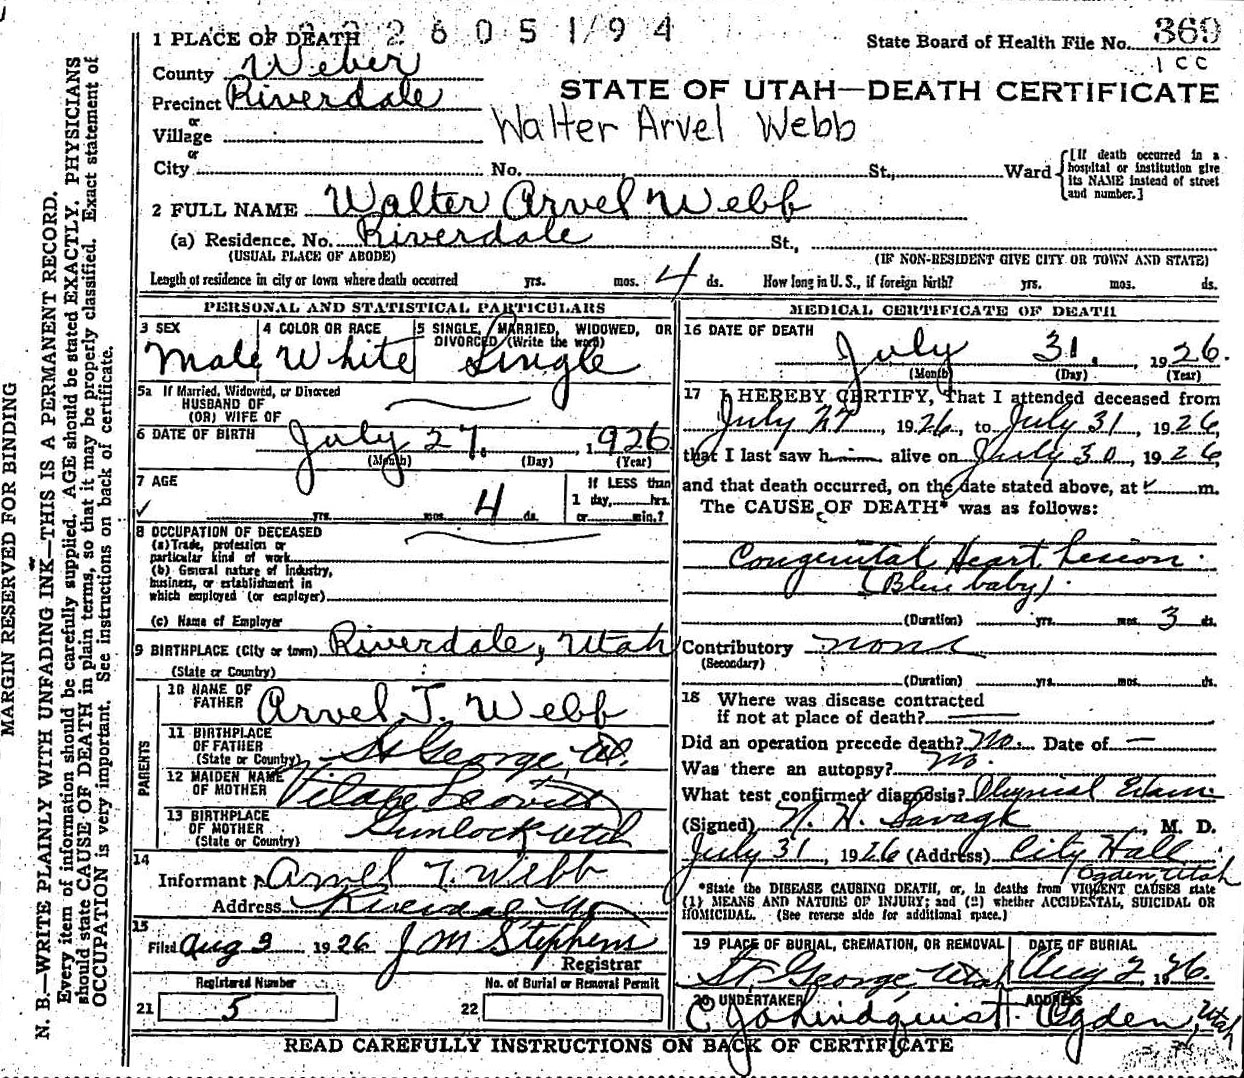 2 6 0 5 1/9 4
1 PLACE OF DEATH
State Board of Health File No. 369
1 C C
County Weber
STATE OF UTAH—DEATH CERTIFICATE
Precinct Riverdale
or
Village
Walter Arvel Webb
or
City No. St., Ward
[If death occurred in a hospital or institution give its NAME instead of street and number.]
2 FULL NAME Walter Arvel Webb
(a) Residence. No. Riverdale St.,
(USUAL PLACE OF ABODE) (IF NON-RESIDENT GIVE CITY OR TOWN AND STATE)
Length of residence in city or town where death occurred yrs. mos. 4 ds. How long in U. S., if foreign birth? yrs. mos. ds.
PERSONAL AND STATISTICAL PARTICULARS
3 SEX Male
4 COLOR OR RACE White
5 SINGLE, MARRIED, WIDOWED, OR DIVORCED (Write the word) Single
5a If Married, Widowed, or Divorced
HUSBAND OF
(OR) WIFE OF
6 DATE OF BIRTH July 27, 1926
(Month) (Day) (Year)
7 AGE
yrs. mos. 4 ds.
If LESS than
1 day, hrs.
or min.?
8 OCCUPATION OF DECEASED
(a) Trade, profession or
particular kind of work
(b) General nature of Industry,
business, or establishment in
which employed (or employer)
(c) Name of Employer
9 BIRTHPLACE (City or town) Riverdale, Utah
(State or Country)
PARENTS
10 NAME OF FATHER Arvel T. Webb
11 BIRTHPLACE OF FATHER (State or Country) St George, Ut.
12 MAIDEN NAME OF MOTHER Leavitt
13 BIRTHPLACE OF MOTHER (State or Country) Gunlock Utah
14
Informant Arvel T. Webb
Address Riverdale
15
Filed Aug 2 1926 J M Stephens
Registrar
Registered Number
21 5
No. of Burial or Removal Permit
22
MEDICAL CERTIFICATE OF DEATH
16 DATE OF DEATH
July 31, 1926.
(Month) (Day) (Year)
17 I HEREBY CERTIFY, That I attended deceased from
July 27, 1926, to July 31, 1926,
that I last saw h im alive on July 30, 1926,
and that death occurred, on the date stated above, at m.
The CAUSE OF DEATH* was as follows:
Congenital Heart Lesion.
(Blue baby).
(Duration) yrs. mos. 3 ds.
Contributory none
(Secondary)
(Duration) yrs. mos. ds.
18 Where was disease contracted
if not at place of death?
Did an operation precede death? No. Date of —
Was there an autopsy? No.
What test confirmed diagnosis? Physical Exam.
(Signed) N. H. Savage M. D.
July 31, 1926 (Address) City Hall
Ogden, Utah
*State the DISEASE CAUSING DEATH, or, in deaths from VIOLENT CAUSES state
(1) MEANS AND NATURE OF INJURY; and (2) whether ACCIDENTAL, SUICIDAL OR
HOMICIDAL. (See reverse side for additional space.)
19 PLACE OF BURIAL, CREMATION, OR REMOVAL St George, Utah
DATE OF BURIAL Aug 2, 1926.
20 UNDERTAKER Lindquist
ADDRESS Ogden, Utah
READ CAREFULLY INSTRUCTIONS ON BACK OF CERTIFICATE
MARGIN RESERVED FOR BINDING
N. B.—WRITE PLAINLY WITH UNFADING INK—THIS IS A PERMANENT RECORD.
Every item of information should be carefully supplied. AGE should be stated EXACTLY. PHYSICIANS
should state CAUSE OF DEATH in plain terms, so that it may be properly classified. Exact statement of
OCCUPATION is very important. See instructions on back of certificate.